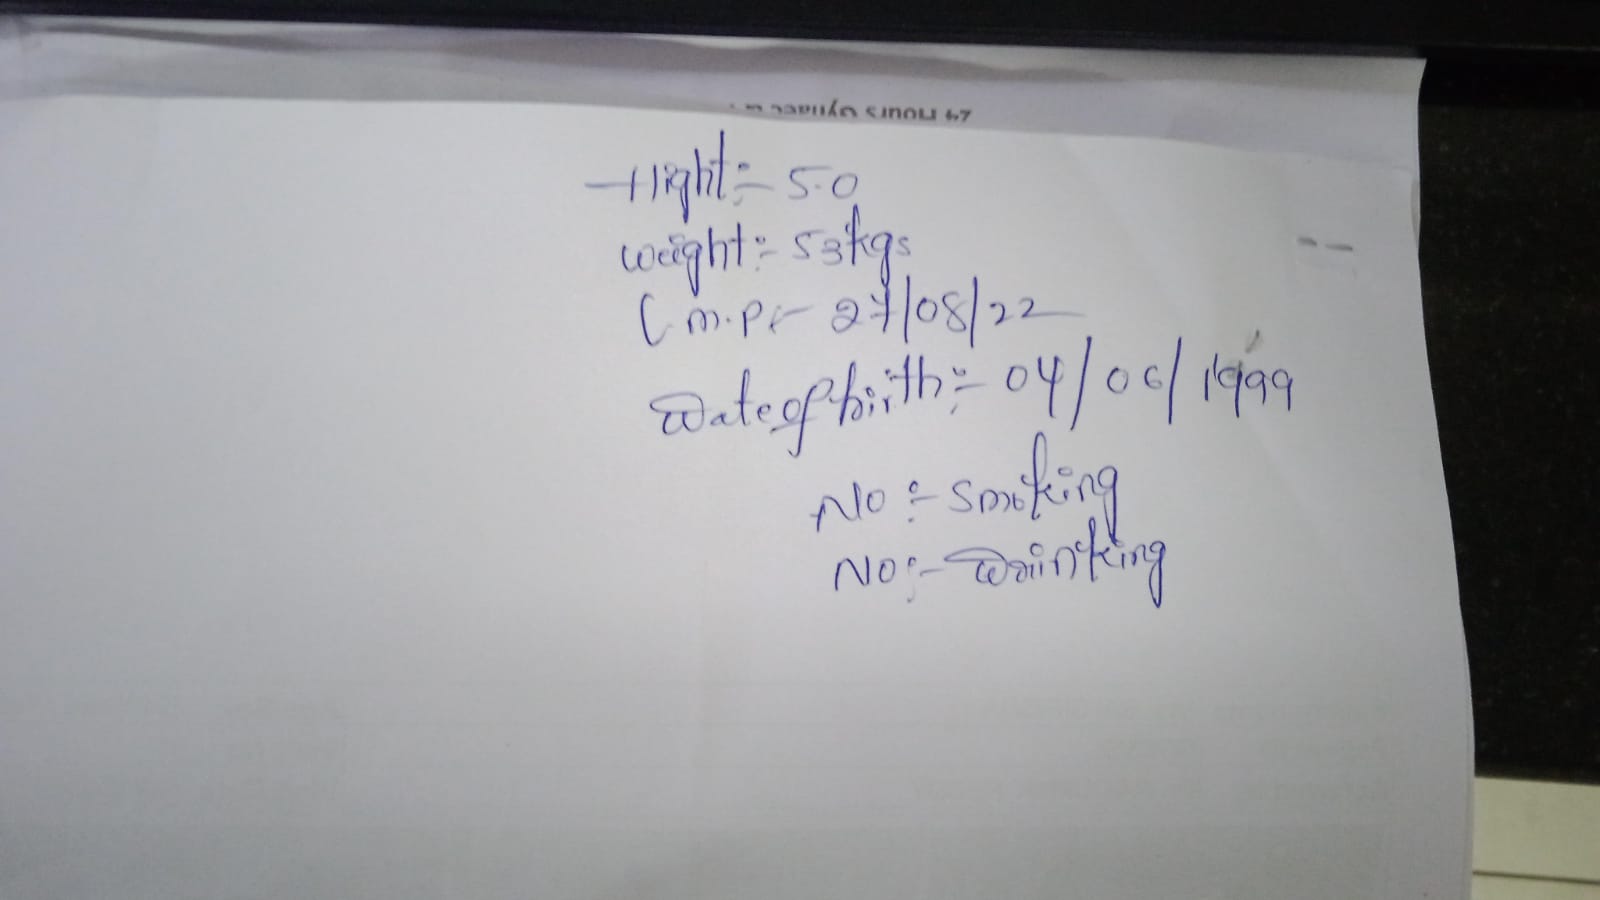 24 Hours
Hight:- 5.0
weight:- 53kgs
L.m.P:- 27/08/22
Date of birth:- 04/06/1999
No:- Smoking
No:- Drinking